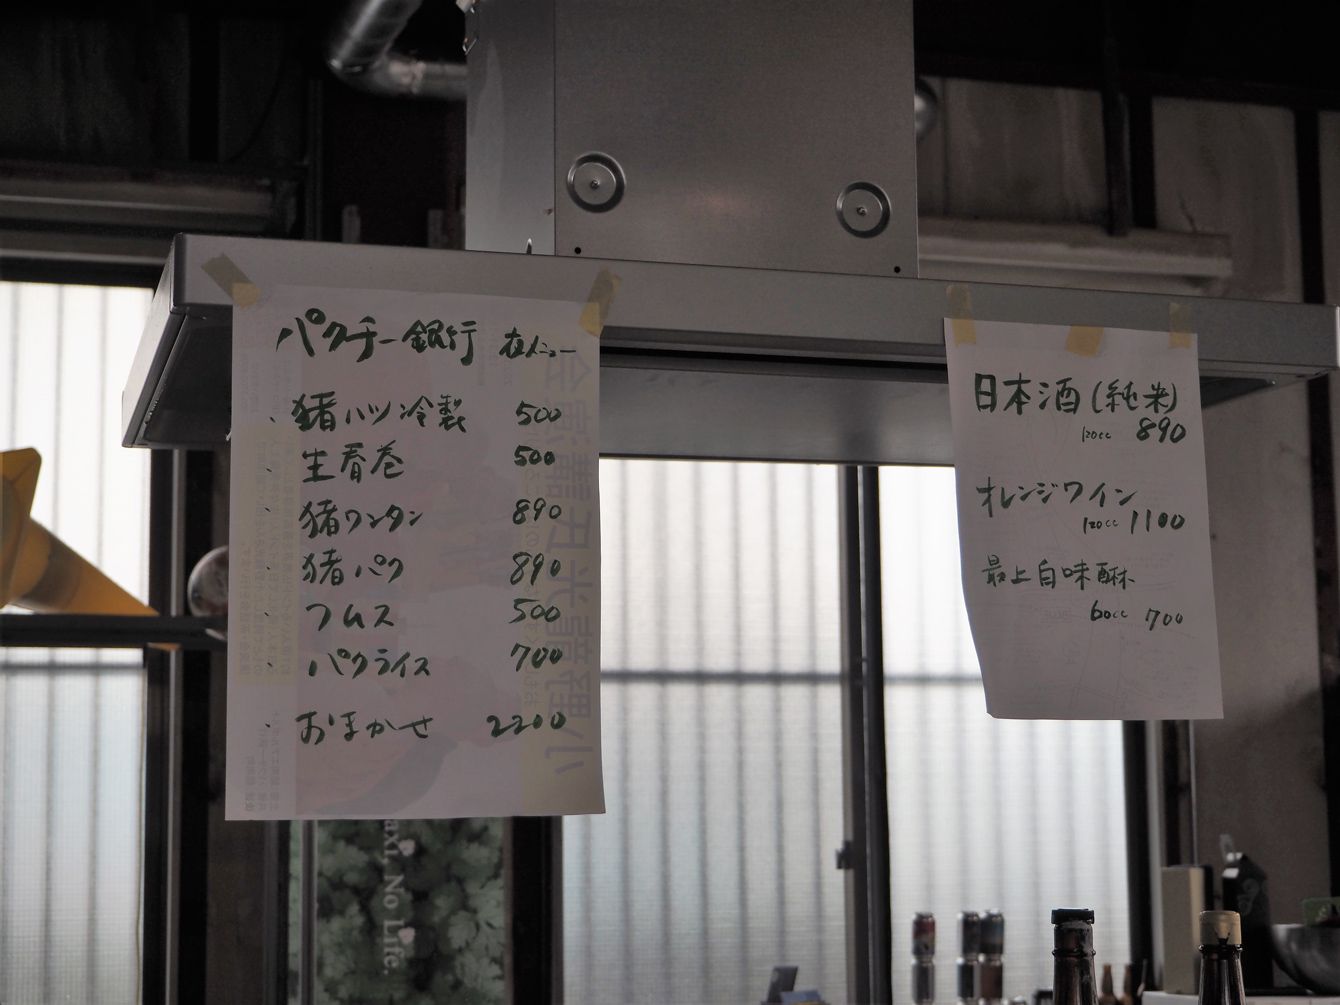 パクチー銀行 夜メニュー
・猪ハツ冷製 500
・生春巻 500
・猪ワンタン 890
・猪パク 890
・フムス 500
・パクライス 700
・おまかせ 2200
日本酒(純米)
120cc 890
オレンジワイン
120cc 1100
最上白味醂
60cc 700
axi, No Life.